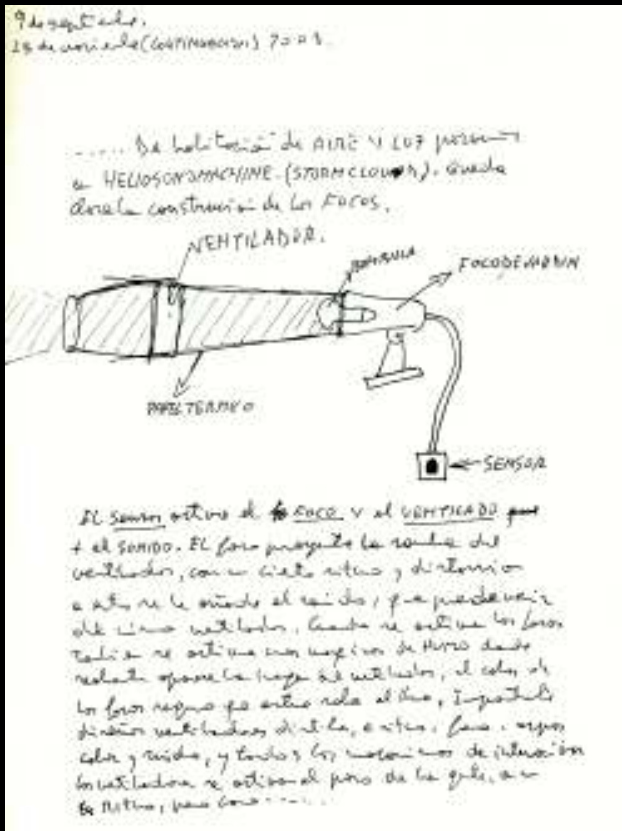 9 de septiembre.
23 de noviembre (CONTINUACION) 2003.
..... De habitación de AIRE Y LUZ
HELIOSONOMACHINE. (STORMCLOUDS). queda
la construcción de Los FOCOS.
VENTILADOR.
BOMBILLA
FOCO DE JARDIN
PAPEL TERMICO
SENSOR
EL Sensor activa el FOCO Y el VENTILADO
+ el SONIDO. EL foco proyecta la sombra del
ventilador, con un cierto ritmo y distorsion
a esto se le añade el sonido, que puede venir
del mismo ventilador. Cuando se activan los focos
también se activan unas maquinas de HUMO donde
la imagen del ventilador, el color de
los focos segun
ventiladores
color y ruido, y todos los mecanismos de interaccion
los ventiladores se activan al paso de la gente, a un
Ritmo, pero como .....